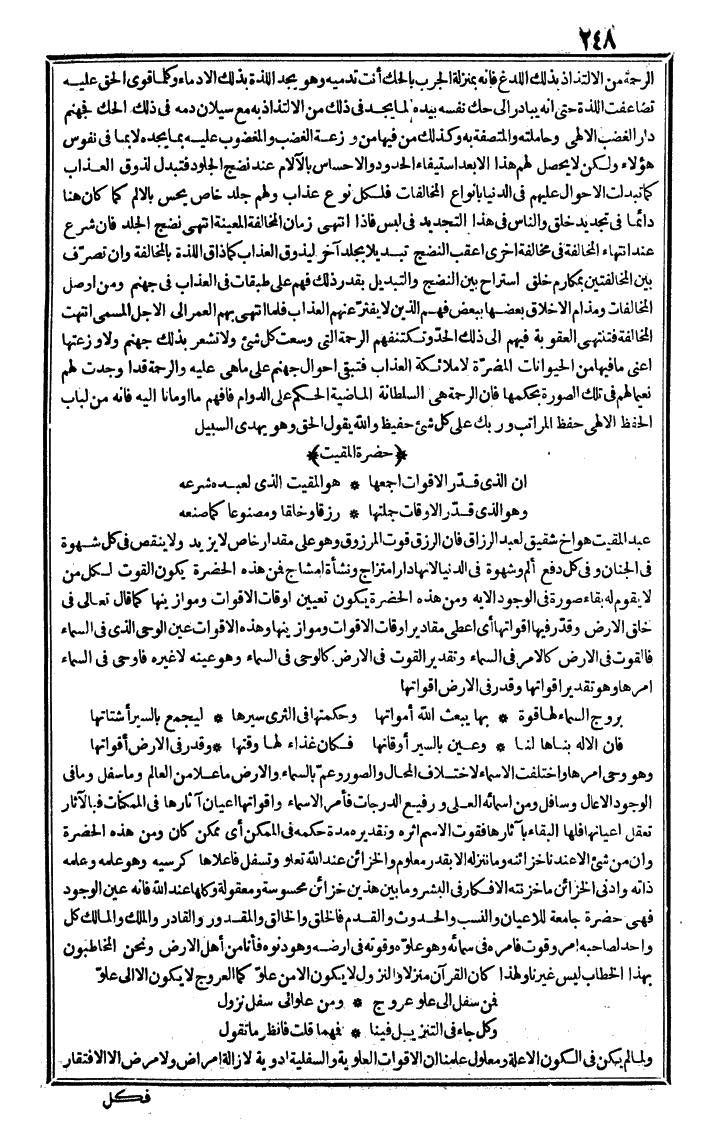 ٢٤٨
الرحمة من الالتذاذ بذلك اللدغ فانه بمنزلة الجرب بالحك أنت تدميه وهو يجد اللذة بذلك الادماء وكلما قوى الحق عليه
تضاعفت اللذة حتى انه يبادر الى حك نفسه بيده لما يجد فى ذلك من الالتذاذ به مع سيلان دمه فى ذلك الحك فجهنم
دار الغضب الالهى وحاملته والمتصفة به وكذلك من فيها من وزعة الغضب والمغضوب عليه بما يجده لا بما فى نفوس
هؤلاء ولكن لا يحصل لهم هذا الا بعد استيفاء الحدود والاحساس بالآلام عند نضج الجلود فتبدل لذوق العذاب
كما تبدلت الاحوال عليهم فى الدنيا بانواع المخالفات فلكل نوع عذاب ولهم جلد خاص يحس بالالم كما كان هنا
دائما فى تجديد خلق والناس فى هذا التجديد فى لبس فاذا انتهى زمان المخالفة المعينة انتهى نضج الجلد فان شرع
عند انتهاء المخالفة فى مخالفة اخرى اعقب النضج تبديلا بجلد آخر ليذوق العذاب كما ذاق اللذة بالمخالفة وان تصرّف
بين المخالفتين بمكارم خلق استراح بين النضج والتبديل بقدر ذلك فهم على طبقات فى العذاب فى جهنم ومن اوصل
المخالفات ومذام الاخلاق بعضها ببعض فهم الذين لا يفترّ عنهم العذاب فلما انتهى بهم العمر الى الاجل المسمى انتهت
المخالفة فتنتهى العقوبة فيهم الى ذلك الحدّ وتكتنفهم الرحمة التى وسعت كل شئ ولا تشعر بذلك جهنم ولا وزعتها
اعنى ما فيها من الحيوانات المضرّة لا ملائكة العذاب فتبقى احوال جهنم على ماهى عليه والرحمة قد اوجدت لهم
نعيما لهم فى تلك الصورة بحكمها فان الرحمة هى السلطانة الماضية الحكم على الدوام فافهم ما اومانا اليه فانه من لباب
الحفظ الالهى حفظ المراتب وربك على كل شئ حفيظ والله يقول الحق وهو يهدى السبيل
﴿حضرة المقيت﴾
ان الذى قدّر الاقوات اجمعها * هو المقيت الذى لعبده شرعه
وهو الذى قدّر الاوقات جلتها * رزقا وخلقا ومصنوعا كما صنعه
عبد المقيت هو اخ شقيق لعبد الرزاق فان الرزق قوت المرزوق وهو على مقدار خاص لا يزيد ولا ينقص فى كل شهوة
فى الجنان وفى كل دفع ألم وشهوة فى الدنيا لانها دار امتزاج ونشأة امشاج فمن هذه الحضرة يكون القوت لكل من
لا يقوم له بقاء صورة فى الوجود الا به ومن هذه الحضرة يكون تعيين اوقات الاقوات وموازينها كما قال تعالى فى
خلق الارض وقدّر فيها اقواتها أى اعطى مقادير اوقات الاقوات وموازينها وهذه الاقوات عين الوحى الذى فى السماء
فالقوت فى الارض كالامر فى السماء وتقدير القوت فى الارض كالوحى فى السماء وهو عينه لا غيره فاوحى فى السماء
امرها وهو تقدير اقواتها وقدر فى الارض اقواتها
بروج السماء لها قوة * بها يبعث الله أمواتها وحكمتها فى الثرى سيرها * ليجمع بالسير أشتاتها
فان الاله بناها لنا * وعين بالسير أوقاتها فكان غذاء لها وقتها * وقدر فى الارض أقواتها
وهو وحى امرها واختلفت الاسماء لاختلاف المحال والصور وعم بالسماء والارض ما علا من العالم وما سفل وما فى
الوجود الا عال وسافل ومن اسمائه العلى ورفيع الدرجات فأمر الاسماء واقواتها اعيان آثارها فى الممكنات فبالآثار
تعقل اعيانها فلها البقاء بآثارها فقوت الاسم اثره وتقديره مدة حكمه فى الممكن أى ممكن كان ومن هذه الحضرة
وان من شئ الا عندنا خزائنه وما ننزله الا بقدر معلوم والخزائن عند الله تعلو وتسفل فاعلاها كرسيه وهو علمه وعلمه
ذاته وادنى الخزائن ما خزنته الافكار فى البشر وما بين هذين خزائن محسوسة ومعقولة وكلها عند الله فانه عين الوجود
فهى حضرة جامعة للاعيان والنسب والحدوث والقدم فالخلق والخالق والمقدور والقادر والملك والمالك كل
واحد لصاحبه امر وقوت فامره فى سمائه وهو علوّه وقوته فى ارضه وهو دنوه فأنا من أهل الارض ونحن المخاطبون
بهذا الخطاب ليس غيرنا ولهذا كان القرآن منزلا والنزول لا يكون الا من علوّ كما العروج لا يكون الا الى علوّ
فمن سفل الى علو عروج * ومن علو الى سفل نزول
وكل جاء فى التنزيل فينا * فمهما قلت فانظر ما تقول
ولما لم يكن فى الكون الا علة ومعلول علمنا ان الاقوات العلوية والسفلية ادوية لازالة امراض ولا مرض الا الافتقار
فكل